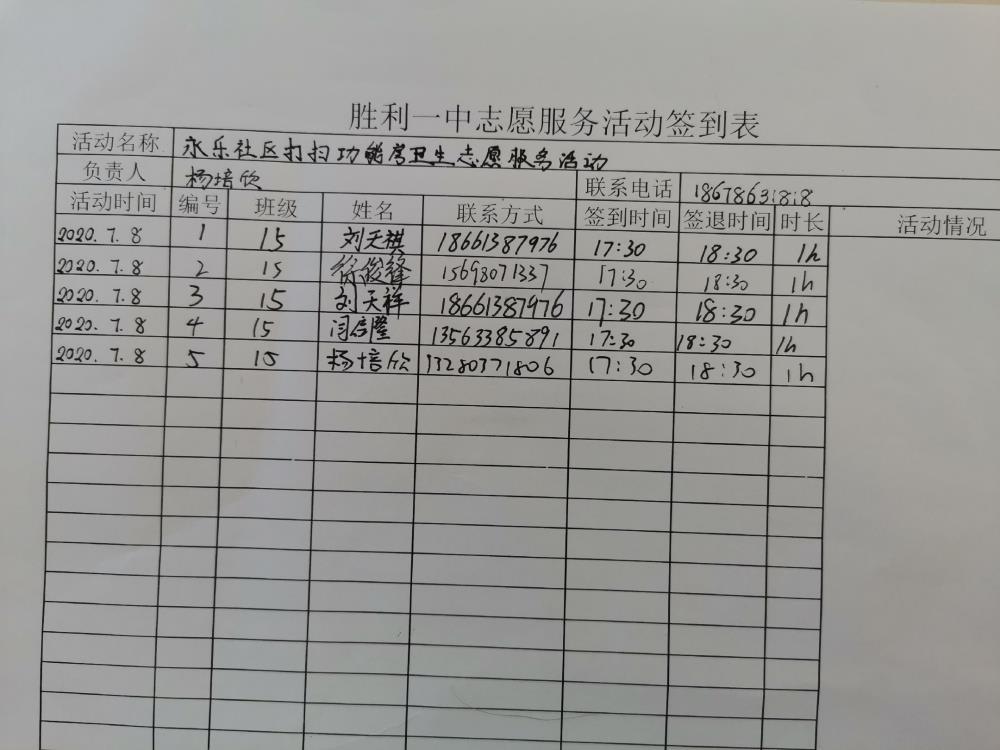 胜利一中志愿服务活动签到表
活动名称 永乐社区打扫功能房卫生志愿服务活动
负责人 杨培欣 联系电话 18678631818
活动时间 编号 班级 姓名 联系方式 签到时间 签退时间 时长 活动情况
2020.7.8 1 15 刘天祺 18661387976 17:30 18:30 1h
2020.7.8 2 15 徐俊锋 15698071337 17:30 18:30 1h
2020.7.8 3 15 刘天祥 18661387976 17:30 18:30 1h
2020.7.8 4 15 闫启隆 13563385891 17:30 18:30 1h
2020.7.8 5 15 杨培欣 13280371806 17:30 18:30 1h